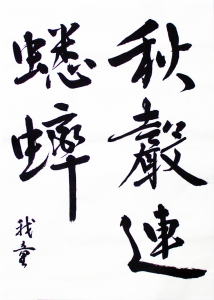 秋聲連
蟋蟀
我童